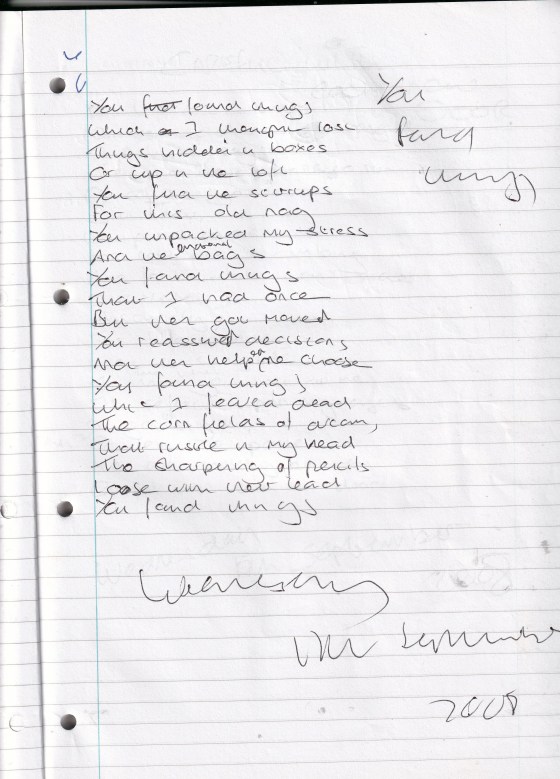 You
found
things
You found things
Which I lost
Things hidden in boxes
Or up in the loft
You find the stirrups
For this old nag
You unpacked my stress
And the bags
You found things
That I had once
But then got moved
You reassured decisions
And then helped me choose
You found things
Which I feared dead
The corn fields of dreams,
That rustle in my head
The sharpening of pencils
Loose with new lead
You found things
Wednesday
September
2008